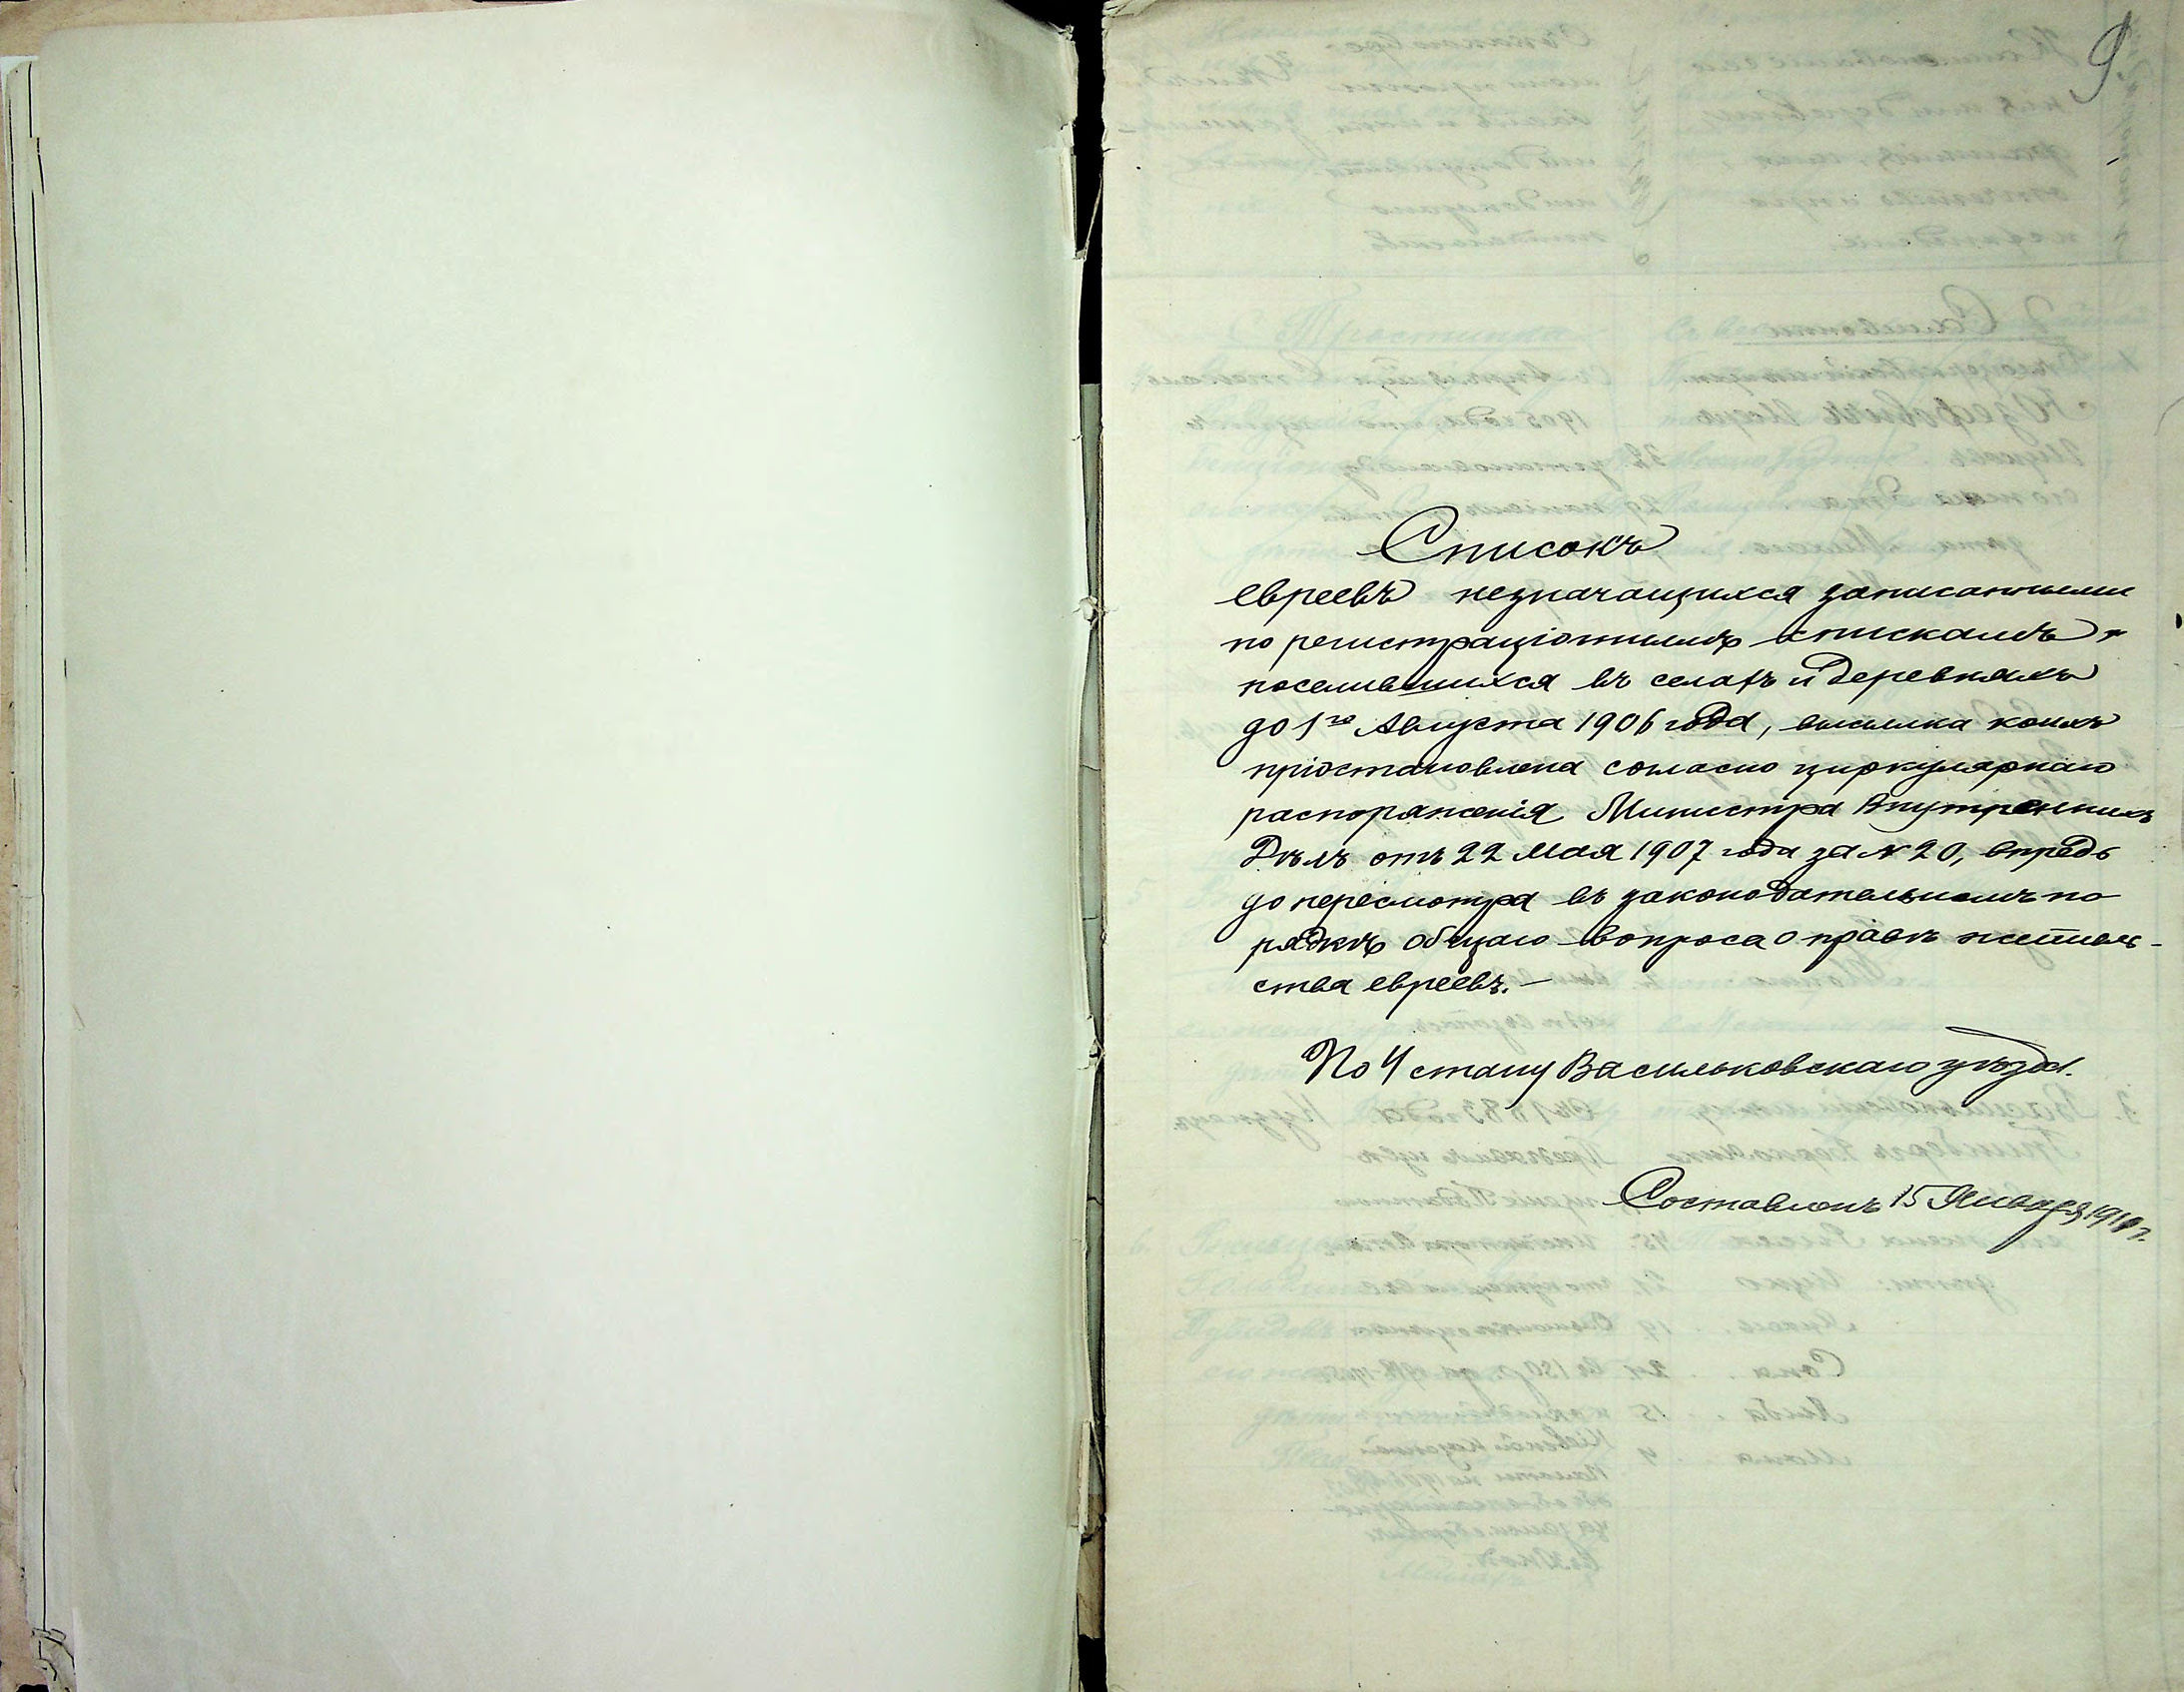 9.
Списокъ
евреевъ незначащихся записанными
по регистраціоннымъ спискамъ и
поселившихся въ селахъ и деревняхъ
до 1го Августа 1906 года, высылка коихъ
пріостановлена согласно циркулярнаго
распоряженія Министра Внутреннихъ
Дѣлъ отъ 22 Мая 1907 года за № 20, впредь
до пересмотра въ законодательномъ по
рядкѣ общаго вопроса о правѣ житель-
ства евреевъ.-
По 4 стану Васильковскаго уѣзда.
Составленъ 15 Января 1910 г.